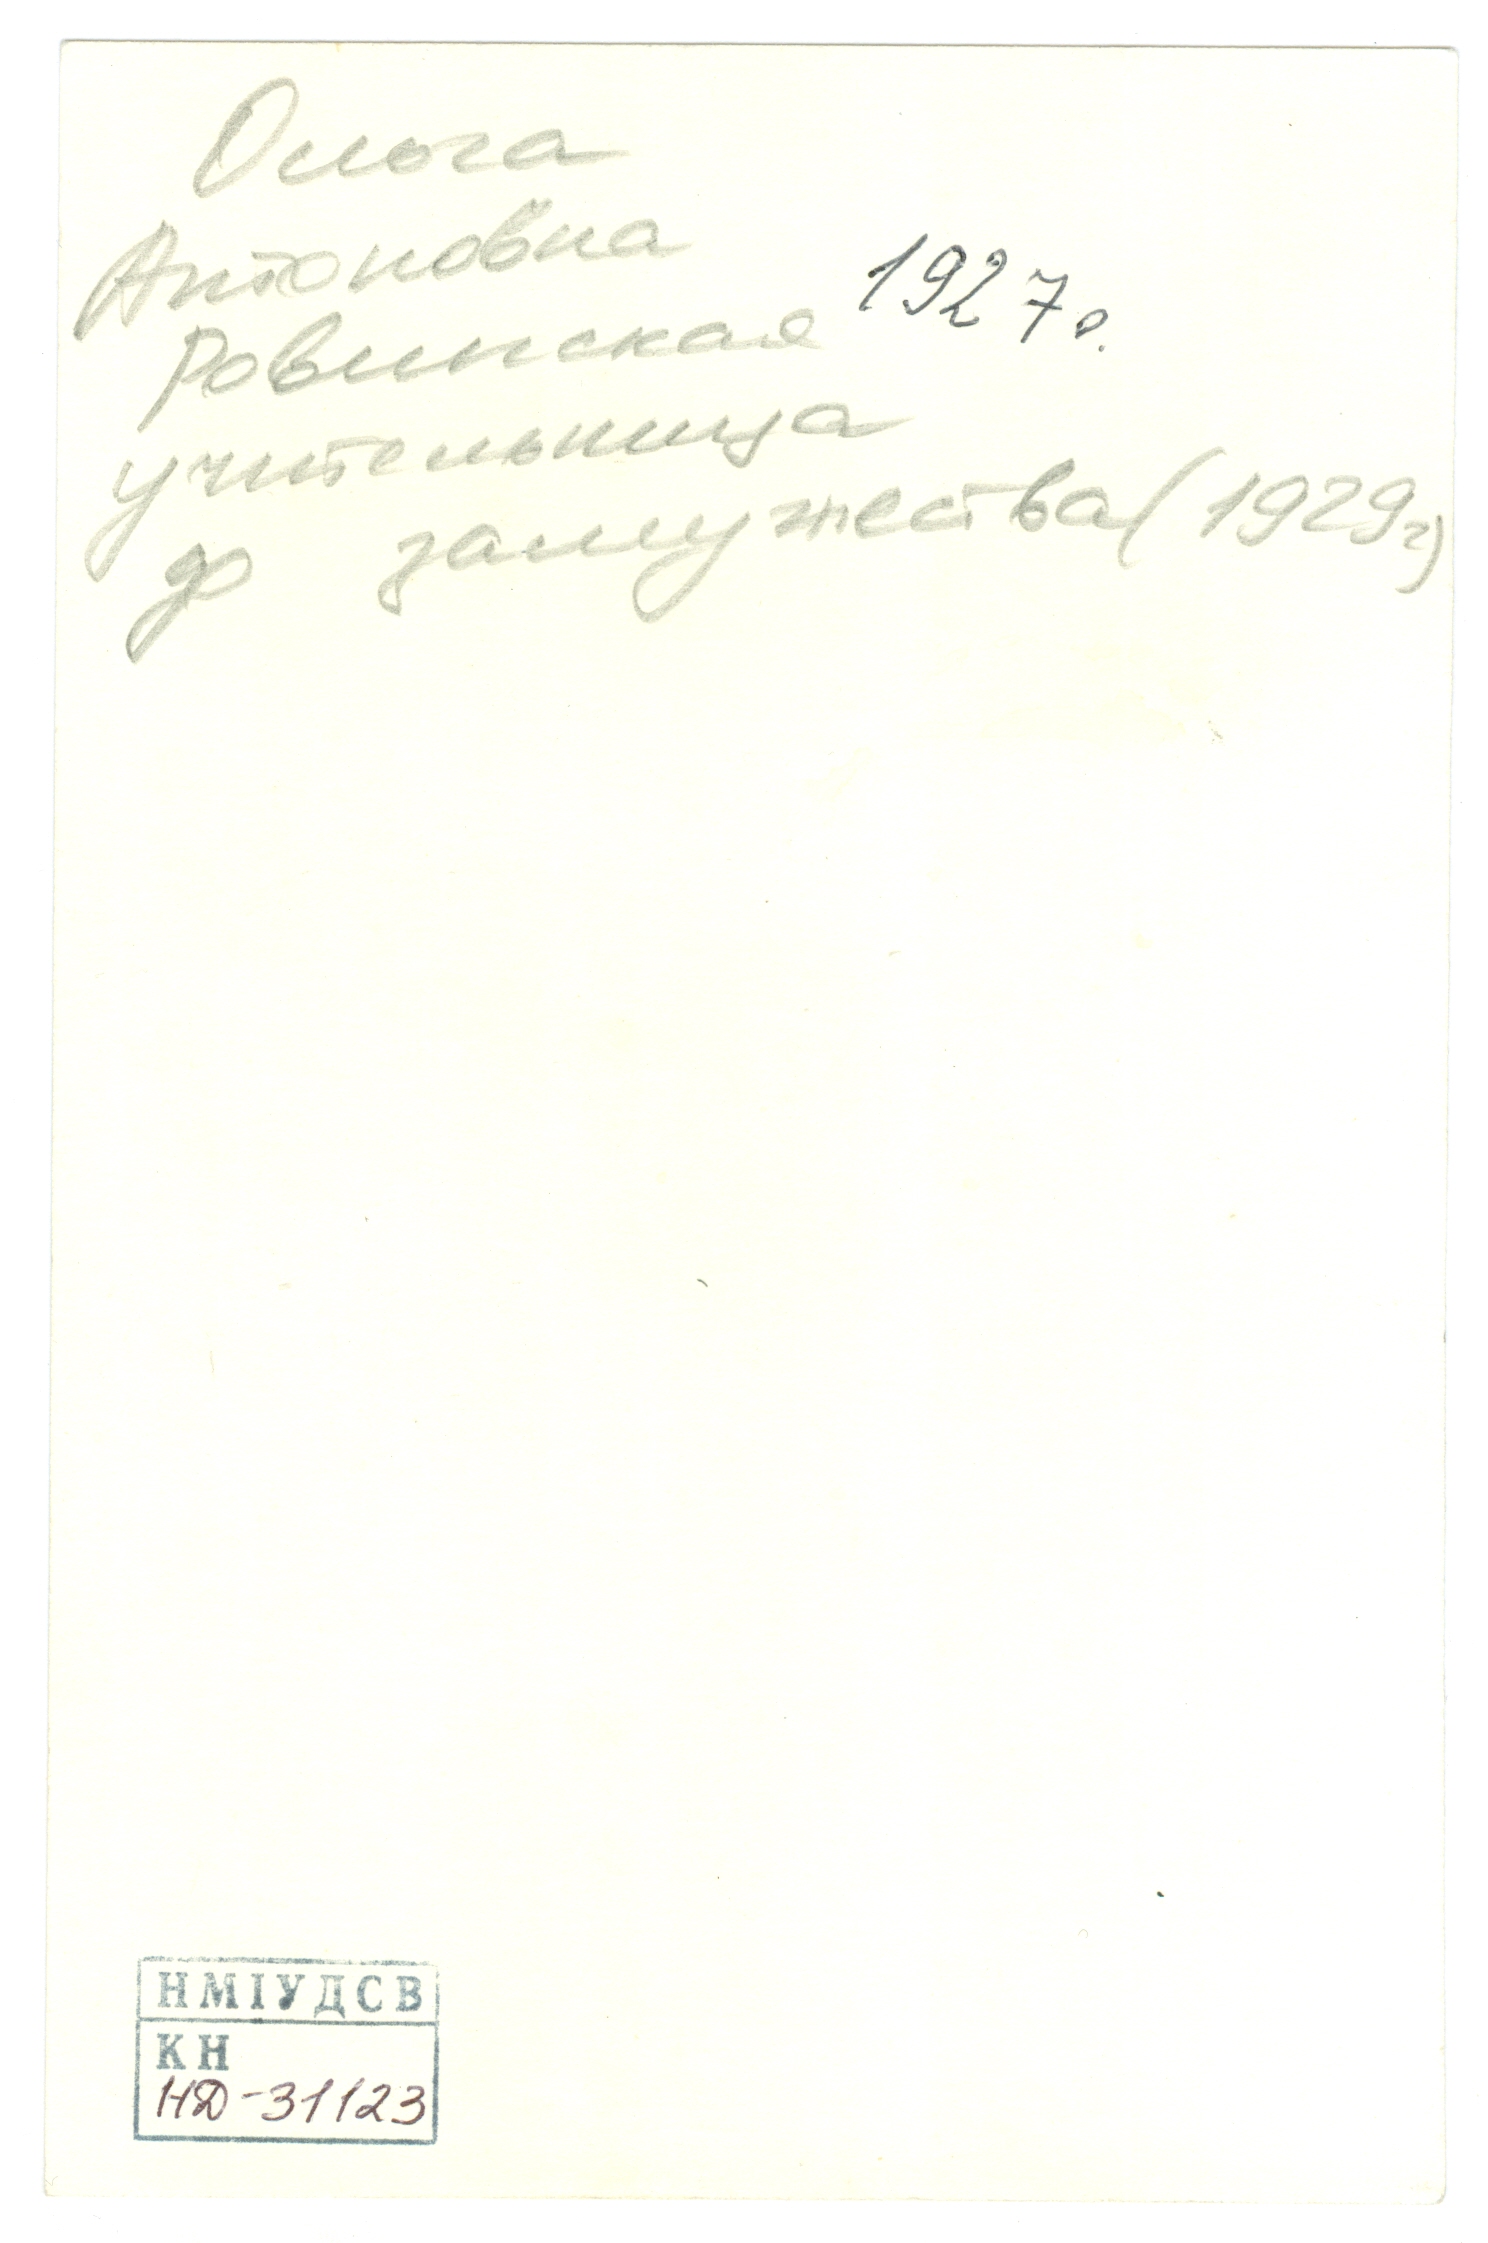 Ольга
Антоновна
Ровинская 1927 р.
учительница
до замужества (1929г)
НМІУДСВ
КН
НД-31123